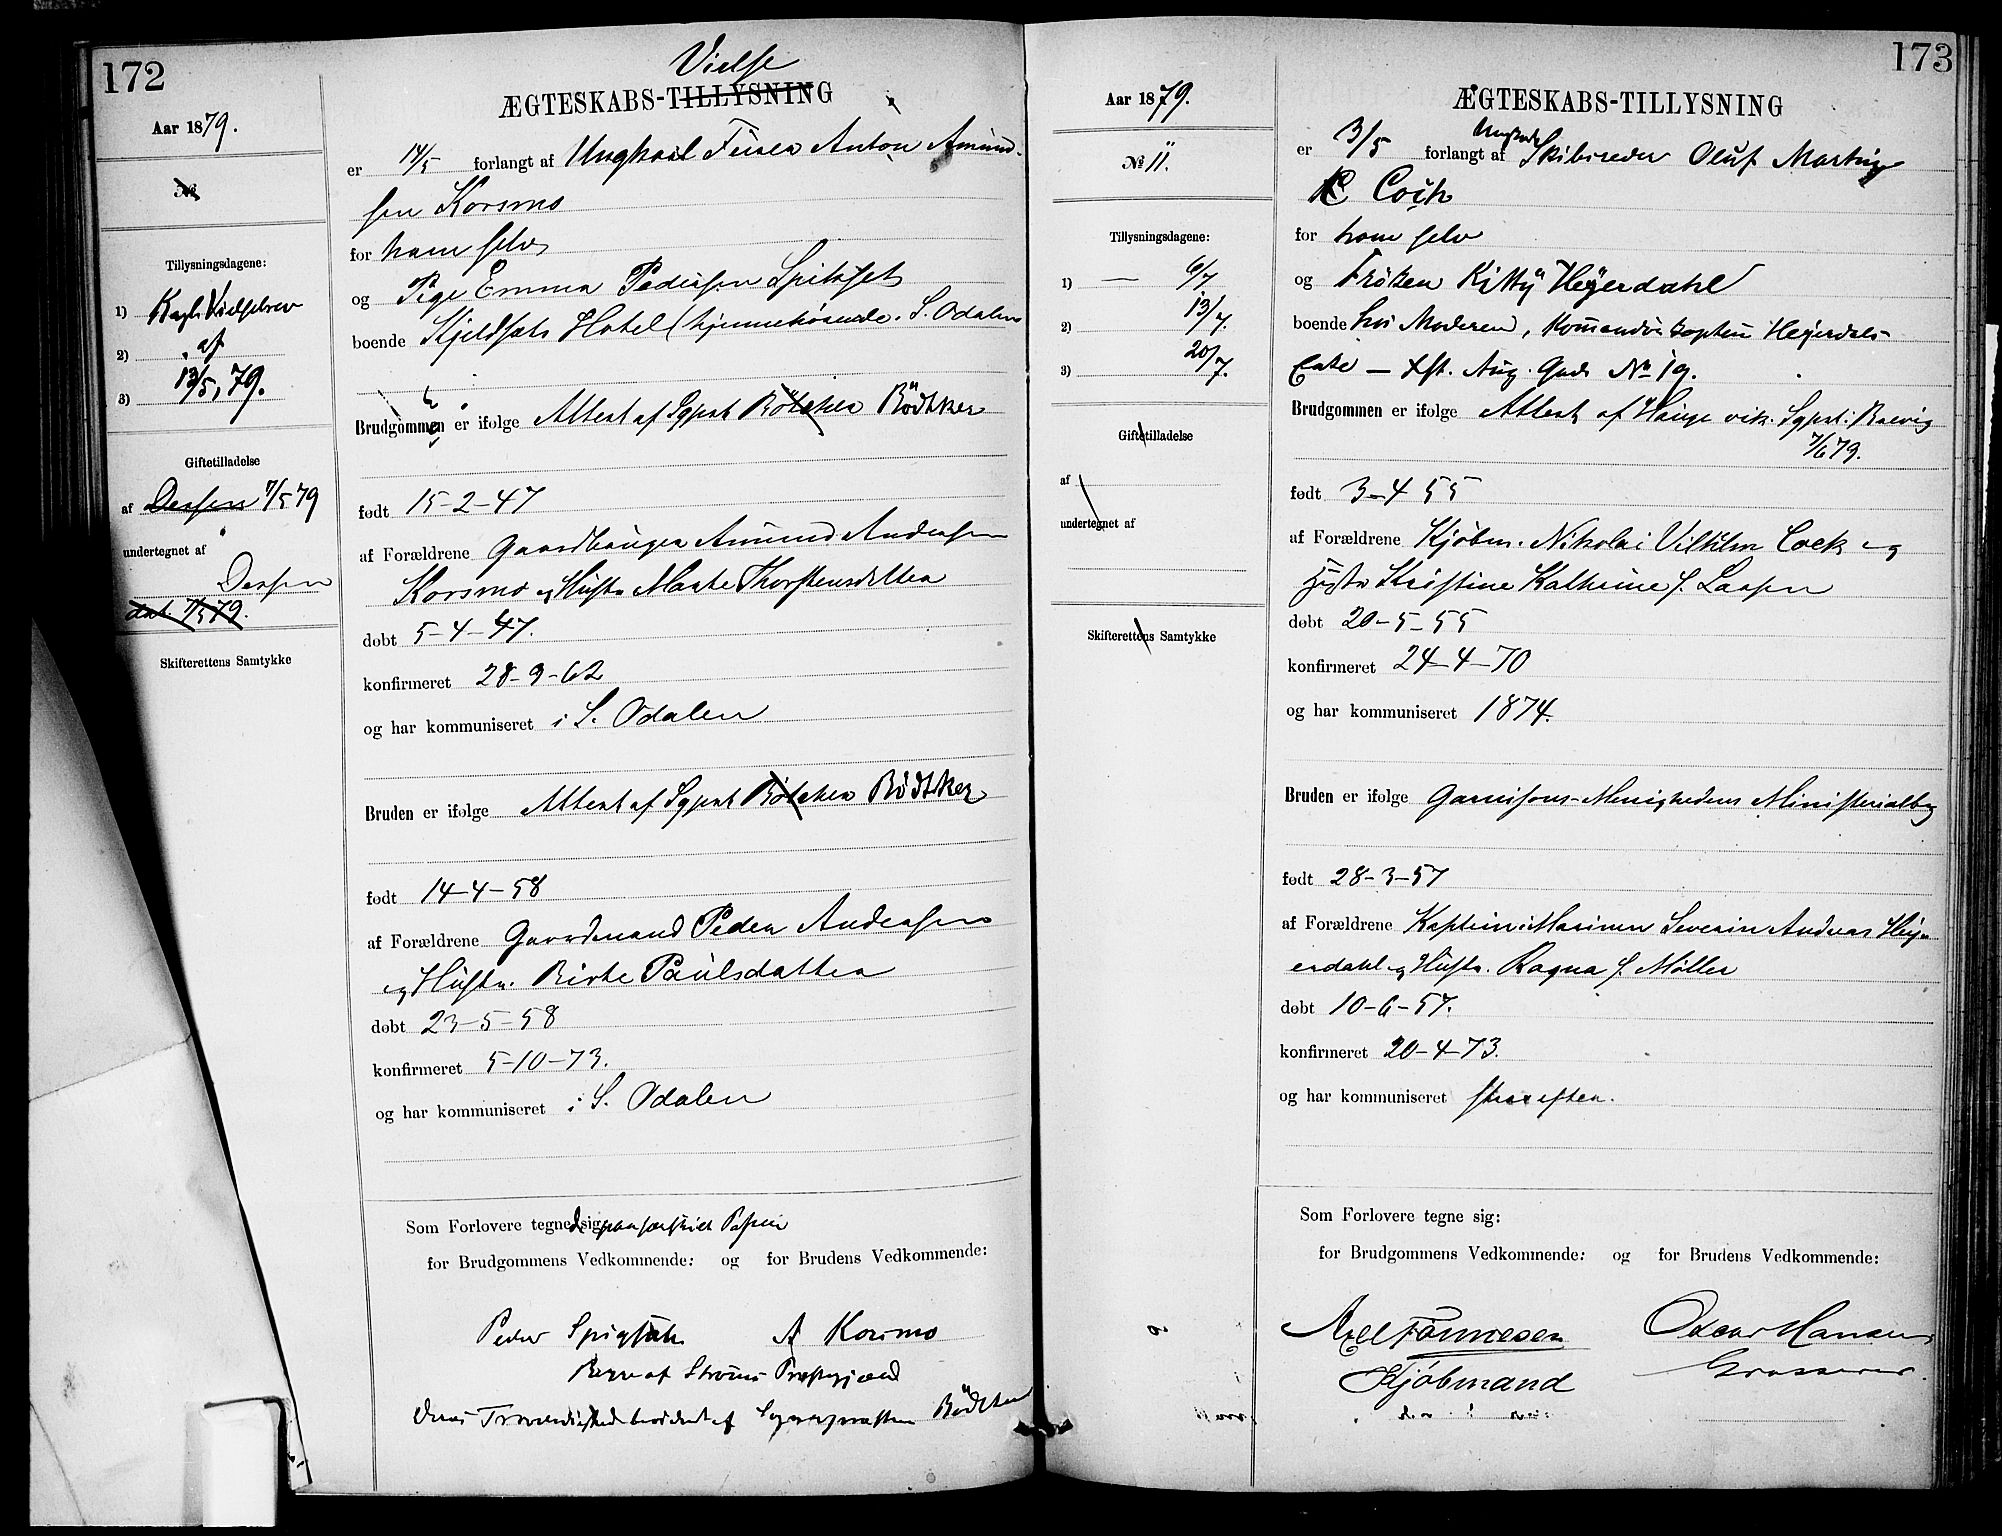 172
Aar 1879.
No
Tillysningsdagene:
1) Kgl. Vielsebrev
2) af
3) 13/5, 79.
Giftetilladelse
af Dessen 7/5 79
undertegnet af
Dessen
dat. 7/5 79.
Skifterettens Samtykke
Vielse
ÆGTESKABS-TILLYSNING
er 14/5 forlangt af Ungkarl Anton Amund-
sen Korsmo
for ham selv
og Pige Emma Pedersen Spitset
boende Skjeldsets Hotel (hjemmehørende i S. Odalen
Brudgommen er ifølge Attest af Sgprst Bøtcher Bödtker
født 15-2-47
af Forældrene Gaardbruger Amund Andersen
Korsmo og Hustr Marte Thorstensdatter
døbt 5-4-47.
konfirmeret 28-9-62
og har kommuniseret i S. Odalen
Bruden er ifølge Attest af Sgprst Bøtcher Bödtker
født 14-4-58
af Forældrene Gaardmand Peder Andersen
og Hustr. Birte Paulsdatter
døbt 23-5-58
konfirmeret 5-10-73.
og har kommuniseret i S. Odalen
Som Forlovere tegned sig paa særskilt Papir
for Brudgommens Vedkommende: og for Brudens Vedkommende:
Peder A Korsmo
af Strøms Præstegjæld
Deres Troværdighed bevidnet af Sognepræsten Bödtker
173
Aar 1879.
No 11.
Tillysningsdagene:
1) — 6/7
2) 13/7.
3) 20/7.
Giftetilladelse
af
undertegnet af
Skifterettens Samtykke
ÆGTESKABS-TILLYSNING
er 3/5 forlangt af Ungkarl Skibsreder Oluf Martin
Cock
for ham selv
og Frøken Kitty Heyerdahl
boende hos Moderen, Komandörkaptein Heyerdals
Enke — Kst. Aug. Gade No 19.
Brudgommen er ifølge Attest af Hauge vik. Sgprst. i Brevig
7/6 79.
født 3-4 55
af Forældrene Kjøbm. Nikolai Vilhelm Cock og
Hustr Kristine Kathrine f. Larsen
døbt 20-5-55
konfirmeret 24-4-70
og har kommuniseret 1874.
Bruden er ifølge Garnisons-Menighedens Ministerialbog
født 28-3-57
af Forældrene Kaptein i Marinen Severin Andreas Hey-
erdahl og Hustr. Ragna f. Møller
døbt 10-6-57.
konfirmeret 20-4-73.
og har kommuniseret strax efter.
Som Forlovere tegne sig:
for Brudgommens Vedkommende: og for Brudens Vedkommende:
Axel Oscar Hansen
Kjøbmand Grosserer.